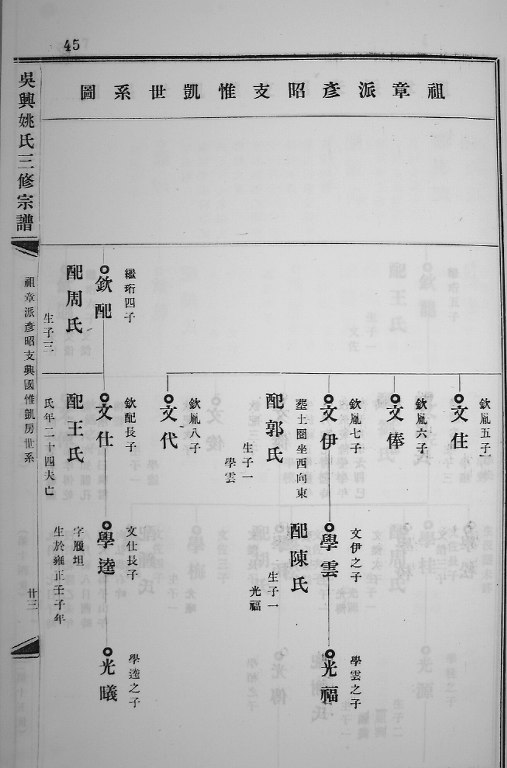 45
祖章派彥昭支惟凱世系圖
吳興姚氏三修宗譜
祖章派彥昭支興國惟凱房世系
廿三
欽胤五子
文住
欽胤六子
文俸
欽胤七子
文伊
塟土圈坐西向東
配郭氏
生子一
學雲
欽胤八子
文代
文伊之子
學雲
配陳氏
生子一
光福
學雲之子
光福
繼珩四子
欽配
配周氏
生子三
欽配長子
文仕
配王氏
氏年二十四夫亡
文仕長子
學逵
字履坦
生於雍正壬子年
學逵之子
光曦